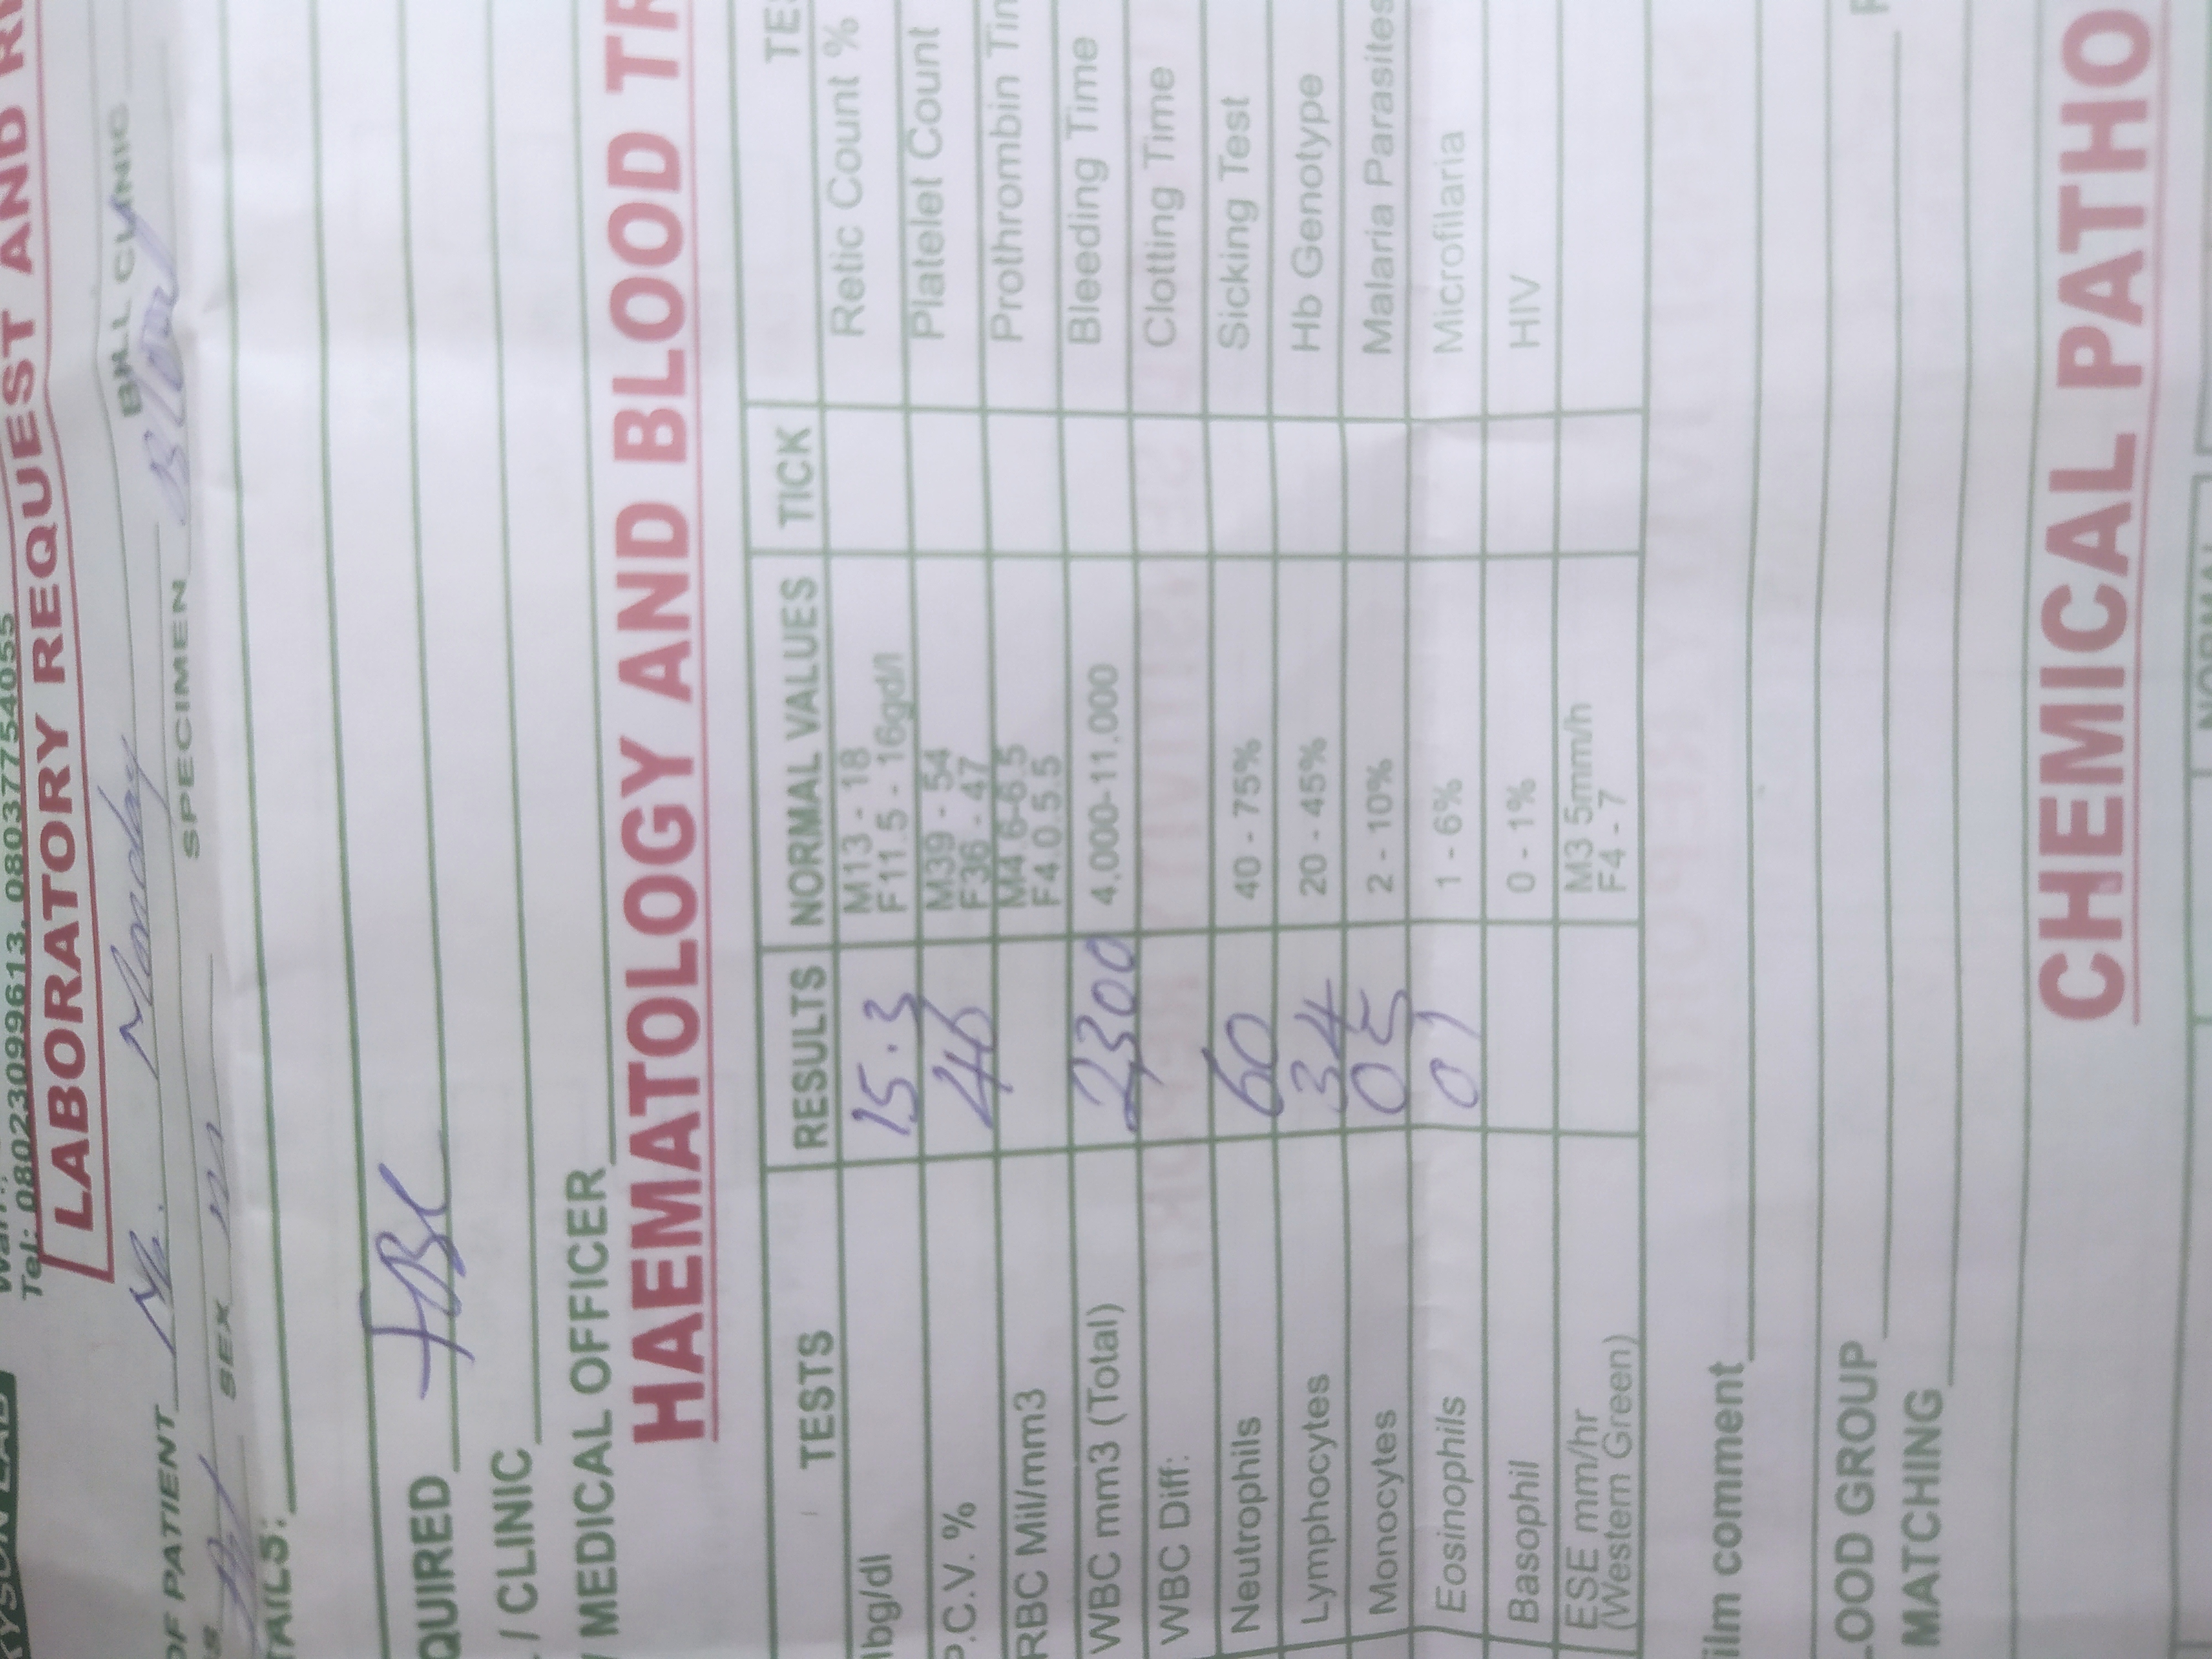 Tel: 08023099613, 08037754055
LABORATORY REQUEST AND R
OF PATIENT Mr. Monday
BILL CLINIC
SEX m SPECIMEN Blood
TAILS:
QUIRED FBC
/ CLINIC
/ MEDICAL OFFICER
HAEMATOLOGY AND BLOOD TR
TESTS RESULTS NORMAL VALUES TICK TES
lbg/dl 15.3 M13 - 18 F11.5 - 16gd/l Retic Count %
P.C.V. % 46 M39 - 54 F36 - 47 Platelet Count
RBC Mil/mm3 M4.6-6.5 F4.0.5.5 Prothrombin Tim
WBC mm3 (Total) 2,300 4,000-11,000 Bleeding Time
WBC Diff: Clotting Time
Neutrophils 60 40 - 75% Sicking Test
Lymphocytes 34 20 - 45% Hb Genotype
Monocytes 05 2 - 10% Malaria Parasites
Eosinophils 01 1 - 6% Microfilaria
Basophil 0 - 1% HIV
ESE mm/hr (Western Green) M3 5mm/h F4 - 7
ilm comment
LOOD GROUP
MATCHING
CHEMICAL PATHO
NORMAL